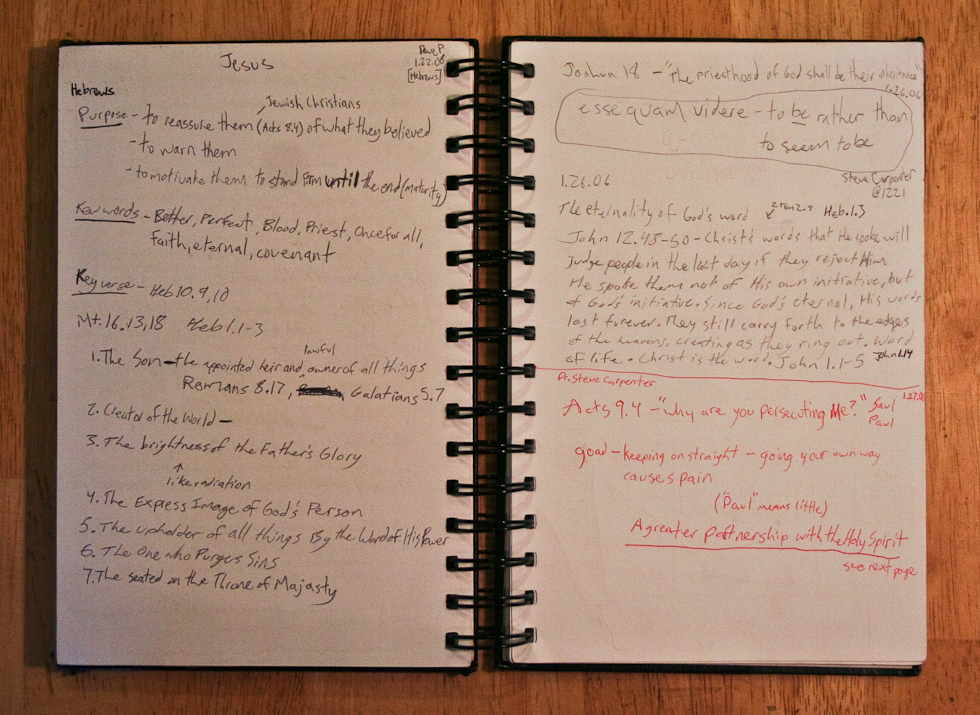 Jesus
Dave P.
1.22.06
[Hebrews]
Hebrews
Jewish Christians
Purpose - to reassure them (Acts 8.4) of what they believed
- to warn them
- to motivate them to stand firm until the end (maturity)
Key words - Better, Perfect, Blood, Priest, Once for all,
Faith, eternal, covenant
Key verse - Heb 10.9,10
Mt. 16.13,18 Heb 1.1-3
lawful
1. The Son - the appointed heir and owner of all things
Romans 8.17, Galatians 5.7
2. Creator of the World -
3. The brightness of the Father's Glory
↑
like radiation
4. The Express Image of God's Person
5. The upholder of all things By the Word of His Power
6. The One who Purges Sins
7. The seated on the Throne of Majasty
Joshua 18 - "The priesthood of God shall be their inheritance"
1.26.06
esse quam videre - to be rather than
to seem to be
Steve Carpenter
@1221
1.26.06
The eternality of God's word ↙ Heb. 1.3
John 12.48-50 - Christ's words that He spoke will
judge people in the last day if they reject Him
He spoke them not of His own initiative, but
of God's initiative. Since God's eternal, His words
last forever. They still carry forth to the edges
of the heavens, creating as they ring out. Word
of life. Christ is the word. John 1.1-5 John 1.14
Pr. Steve Carpenter
1.27.06
Acts 9.4 - "why are you persecuting Me?" Saul
Paul
goad - keeping on straight - going your own way
causes pain
("Paul" means little)
A greater partnership with the Holy Spirit
see next page